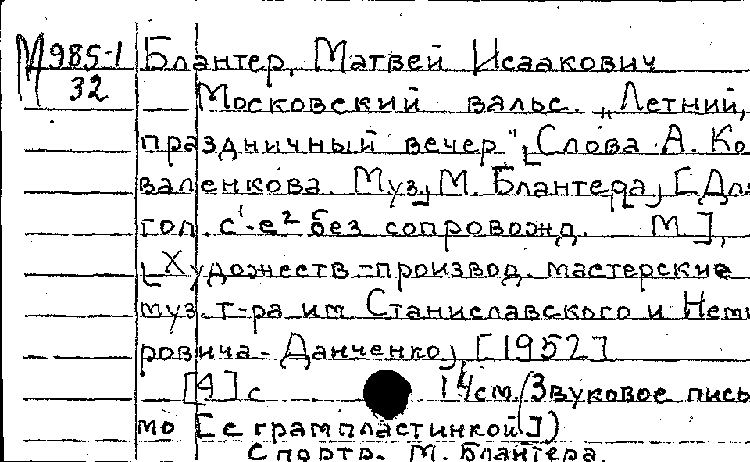 М985-1 Блантер, Матвей Исаакович
32 Московский вальс. „Летний,
праздничный вечер". [Слова А. Ко
валенкова. Муз.] М. Блантера, [Для
гол. с¹-е² без сопровожд. М.],
[Художеств-производ. мастерские
муз. т-ра им Станиславского и Неми
ровича-Данченко], [1952]
[4] с 14 см. (Звуковое пись
мо [с грампластинкой])
С портр. М. Блантера.